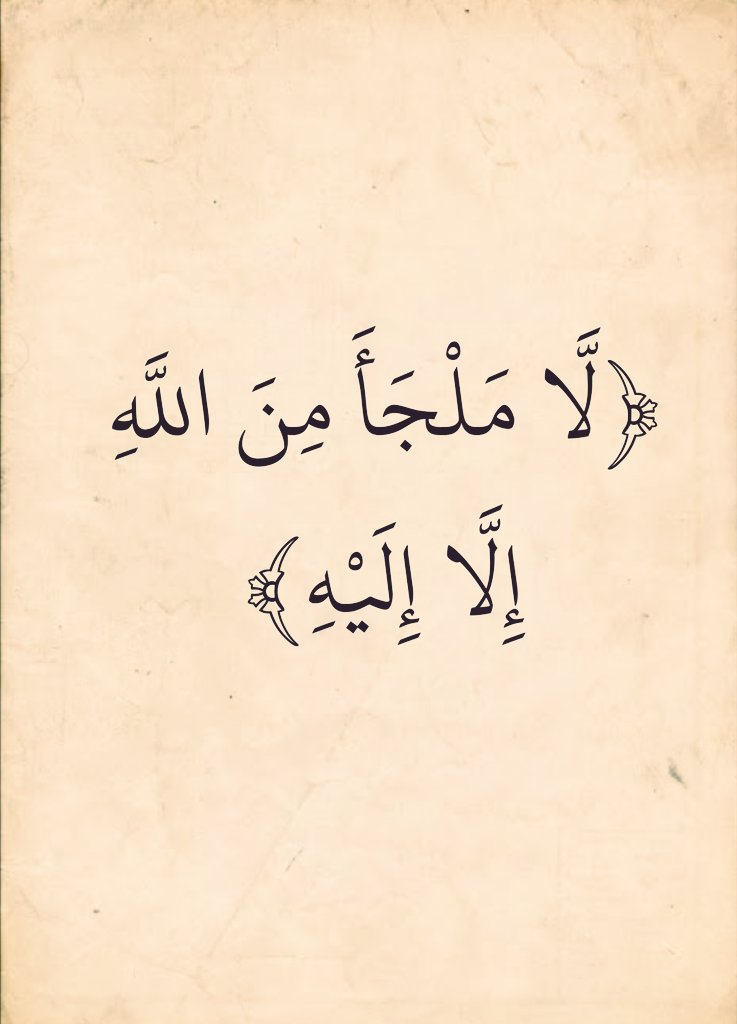 ﴿لَّا مَلْجَأَ مِنَ اللَّهِ
إِلَّا إِلَيْهِ﴾